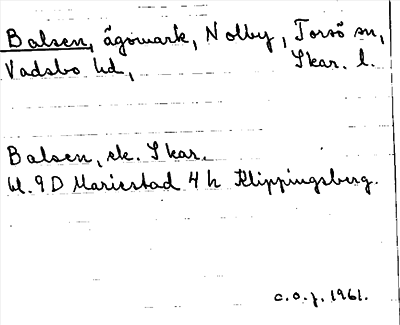 Balsen, ägomark, Nolby, Torsö sn,
Vadsbo hd, Skar. l.
Balsen, sk. Skar.
bl. 9D Mariestad 4 h Klippingsberg.
c.o.j. 1961.